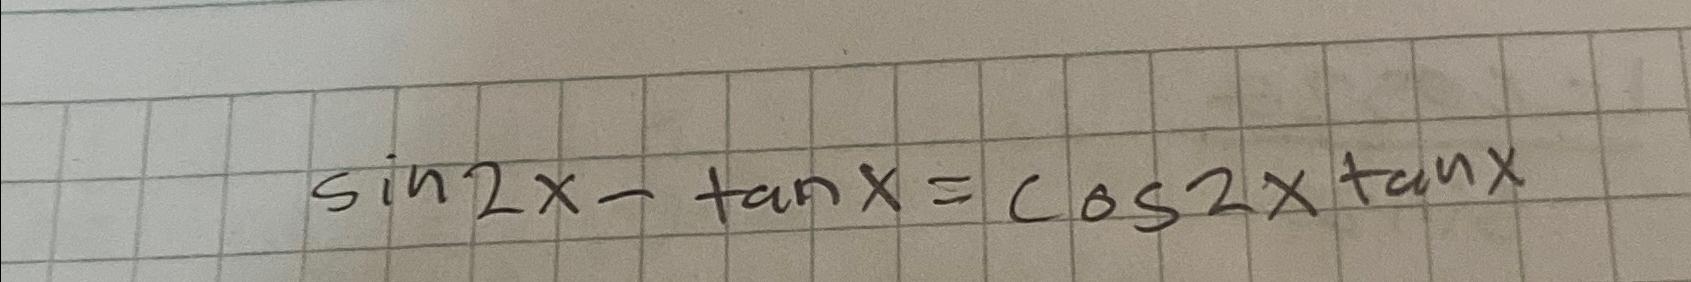 sin2x - tanx = cos2x tanx